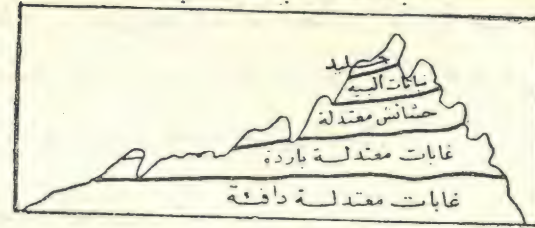 جليد
نباتات البيه
حشائش معتدلة
غابات معتدلة باردة
غابات معتدلة دافئة